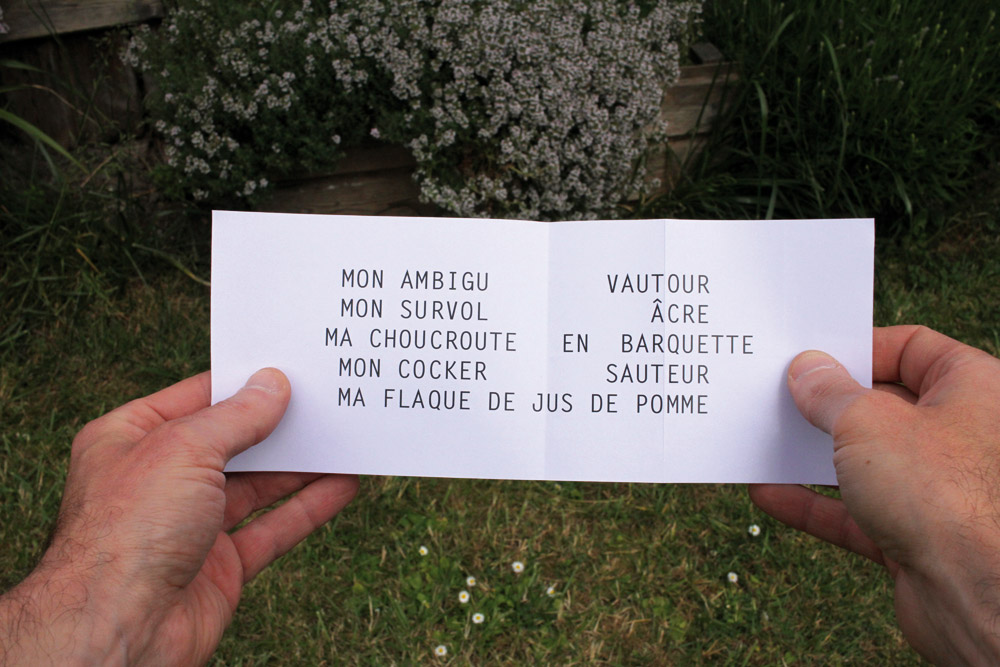 MON AMBIGU VAUTOUR
MON SURVOL ÂCRE
MA CHOUCROUTE EN BARQUETTE
MON COCKER SAUTEUR
MA FLAQUE DE JUS DE POMME